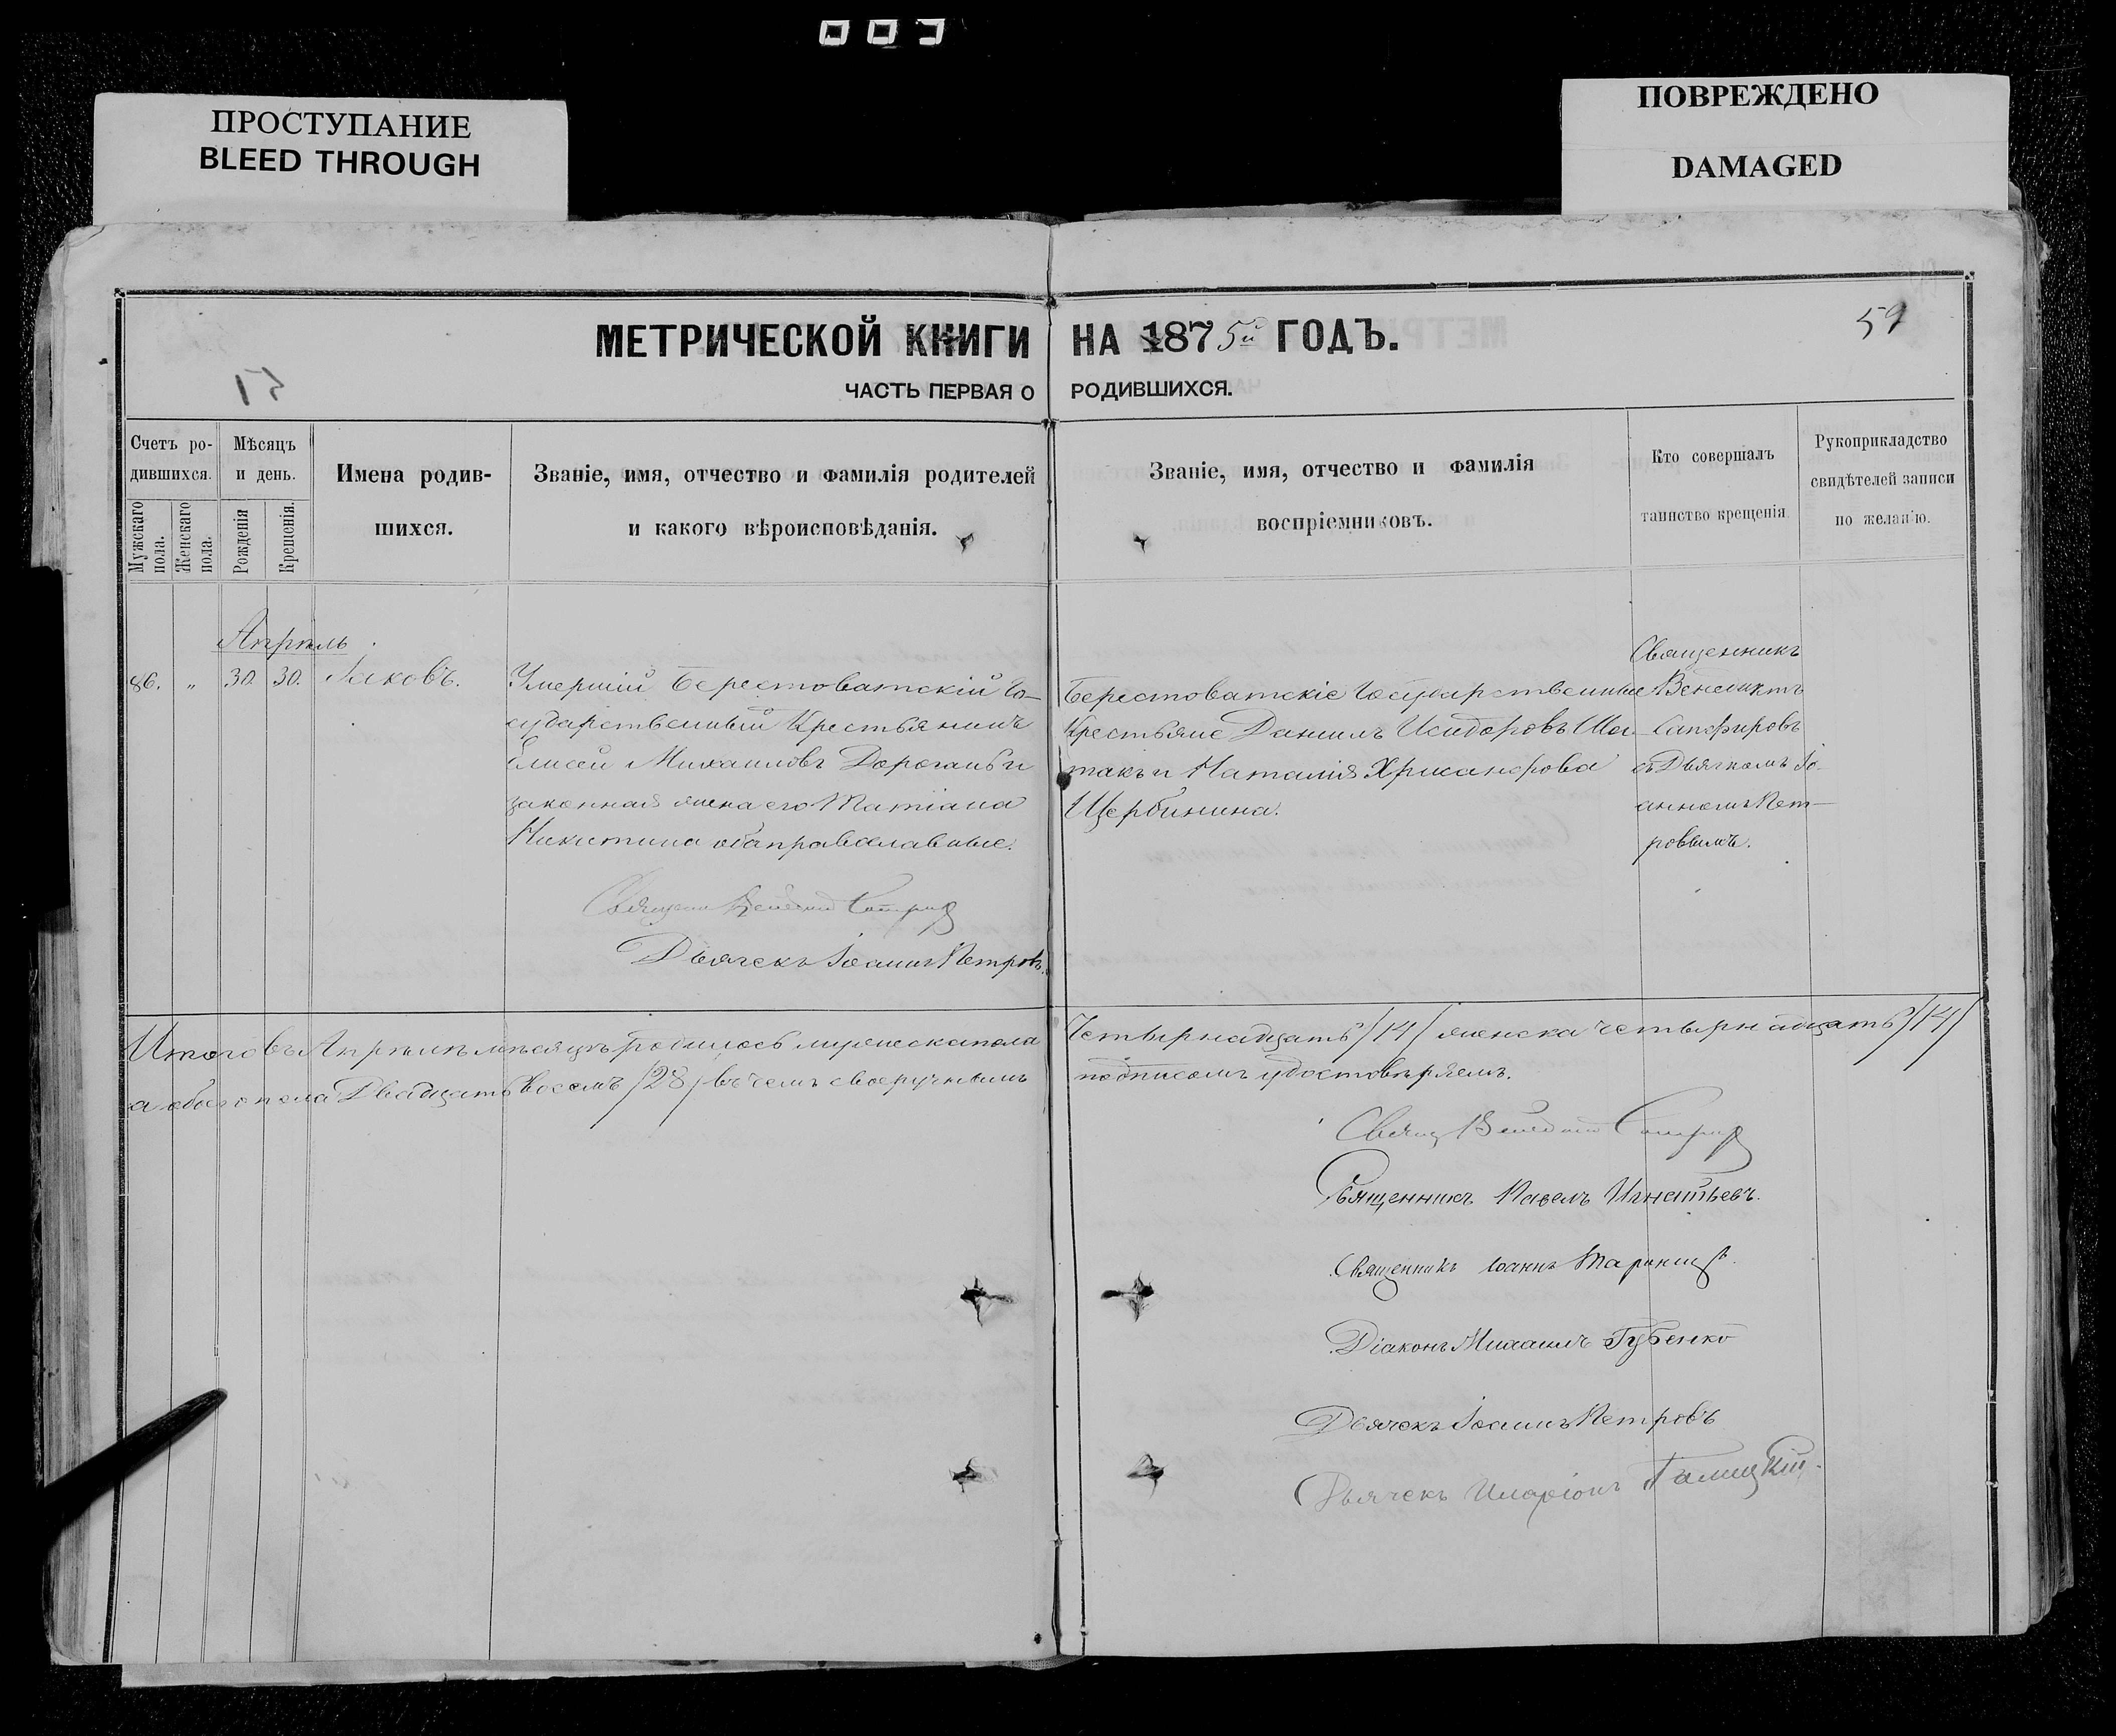 003
ПРОСТУПАНИЕ
BLEED THROUGH
ПОВРЕЖДЕНО
DAMAGED
МЕТРИЧЕСКОЙ КНИГИ НА 1875й ГОДЪ.
59
ЧАСТЬ ПЕРВАЯ О РОДИВШИХСЯ.
Счетъ ро-
дившихся.
Мужскаго
пола.
Женскаго
пола.
Мѣсяцъ
и день.
Рожденія
Крещенія.
Имена родив-
шихся.
Званіе, имя, отчество и фамилія родителей
и какого вѣроисповѣданія.
Званіе, имя, отчество и фамилія
воспріемниковъ.
Кто совершалъ
таинство крещенія
Рукоприкладство
свидѣтелей записи
по желанію.
Апрѣль
86. „ 30. 30. Іаковъ.
Умершій Берестоватскій Го-
сударственный Крестьянинъ
Елисей Михаиловъ Дорогань и
законная жена его Татіана
Никитина оба православные.
Дьячекъ Іоаннъ Петровъ.
Берестоватскіе Государственные
Крестьяне Даніилъ Исидоровъ Ша-
такъ и Наталія Хрисанфова
Щербинина.
Священникъ
Венедиктъ
Сапфировъ
съ Дьячкомъ Іо-
анномъ Пет-
ровымъ.
Итого въ Апрѣлѣ мѣсяцѣ родилось мужеска пола Четырнадцать /14/ женска четырнадцать /14/
а обоего пола Двадцать восемь /28/ въ чемъ своеручнымъ подписомъ удостовѣряемъ.
Священникъ Павелъ Игнатьевъ.
Священникъ Іоаннъ
Діаконъ Михаилъ Губенко
Дьячекъ Іоаннъ Петровъ
Дьячекъ Иларіонъ Галицкій.